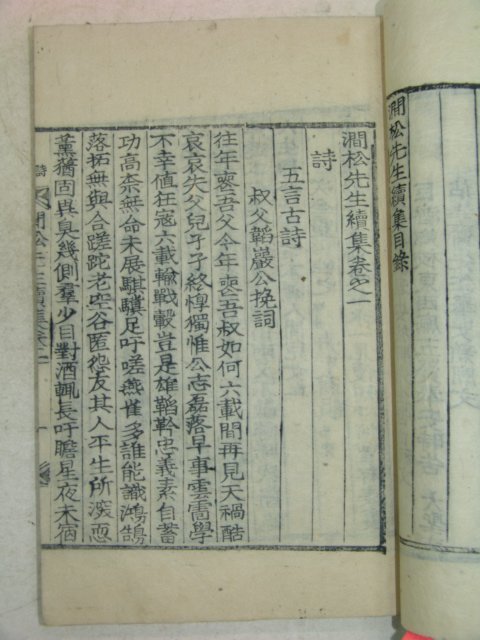 澗松先生續集目錄
澗松先生續集卷之一
詩
五言古詩
叔父韜巖公挽詞
往年喪吾父今年喪吾叔如何六載間再見天禍酷
哀哀失父兒孑孑終惸獨惟公志磊落早事雲霄學
不幸值狂寇六載輪戰轂豈是雄韜鈐忠義素自蓄
功高奈無命未展騏驥足吁嗟燕雀多誰能識鴻鵠
落拓無與合蹉跎老空谷匿怨友其人平生所深恧
薰蕕固異臭幾側羣少目對酒輒長吁瞻星夜未宿
詩
澗松先生續集卷一
一